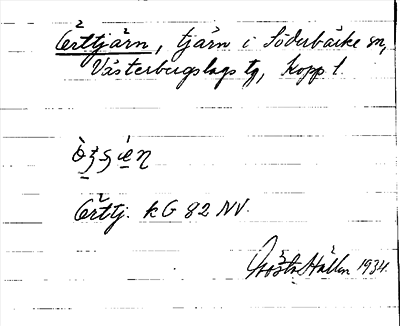 Örttjärn, tjärn i Söderbärke sn,
Västerbergslags tg, Kopp l.
Örttj. kG 82 NV.
Gösta Hallen 1934.